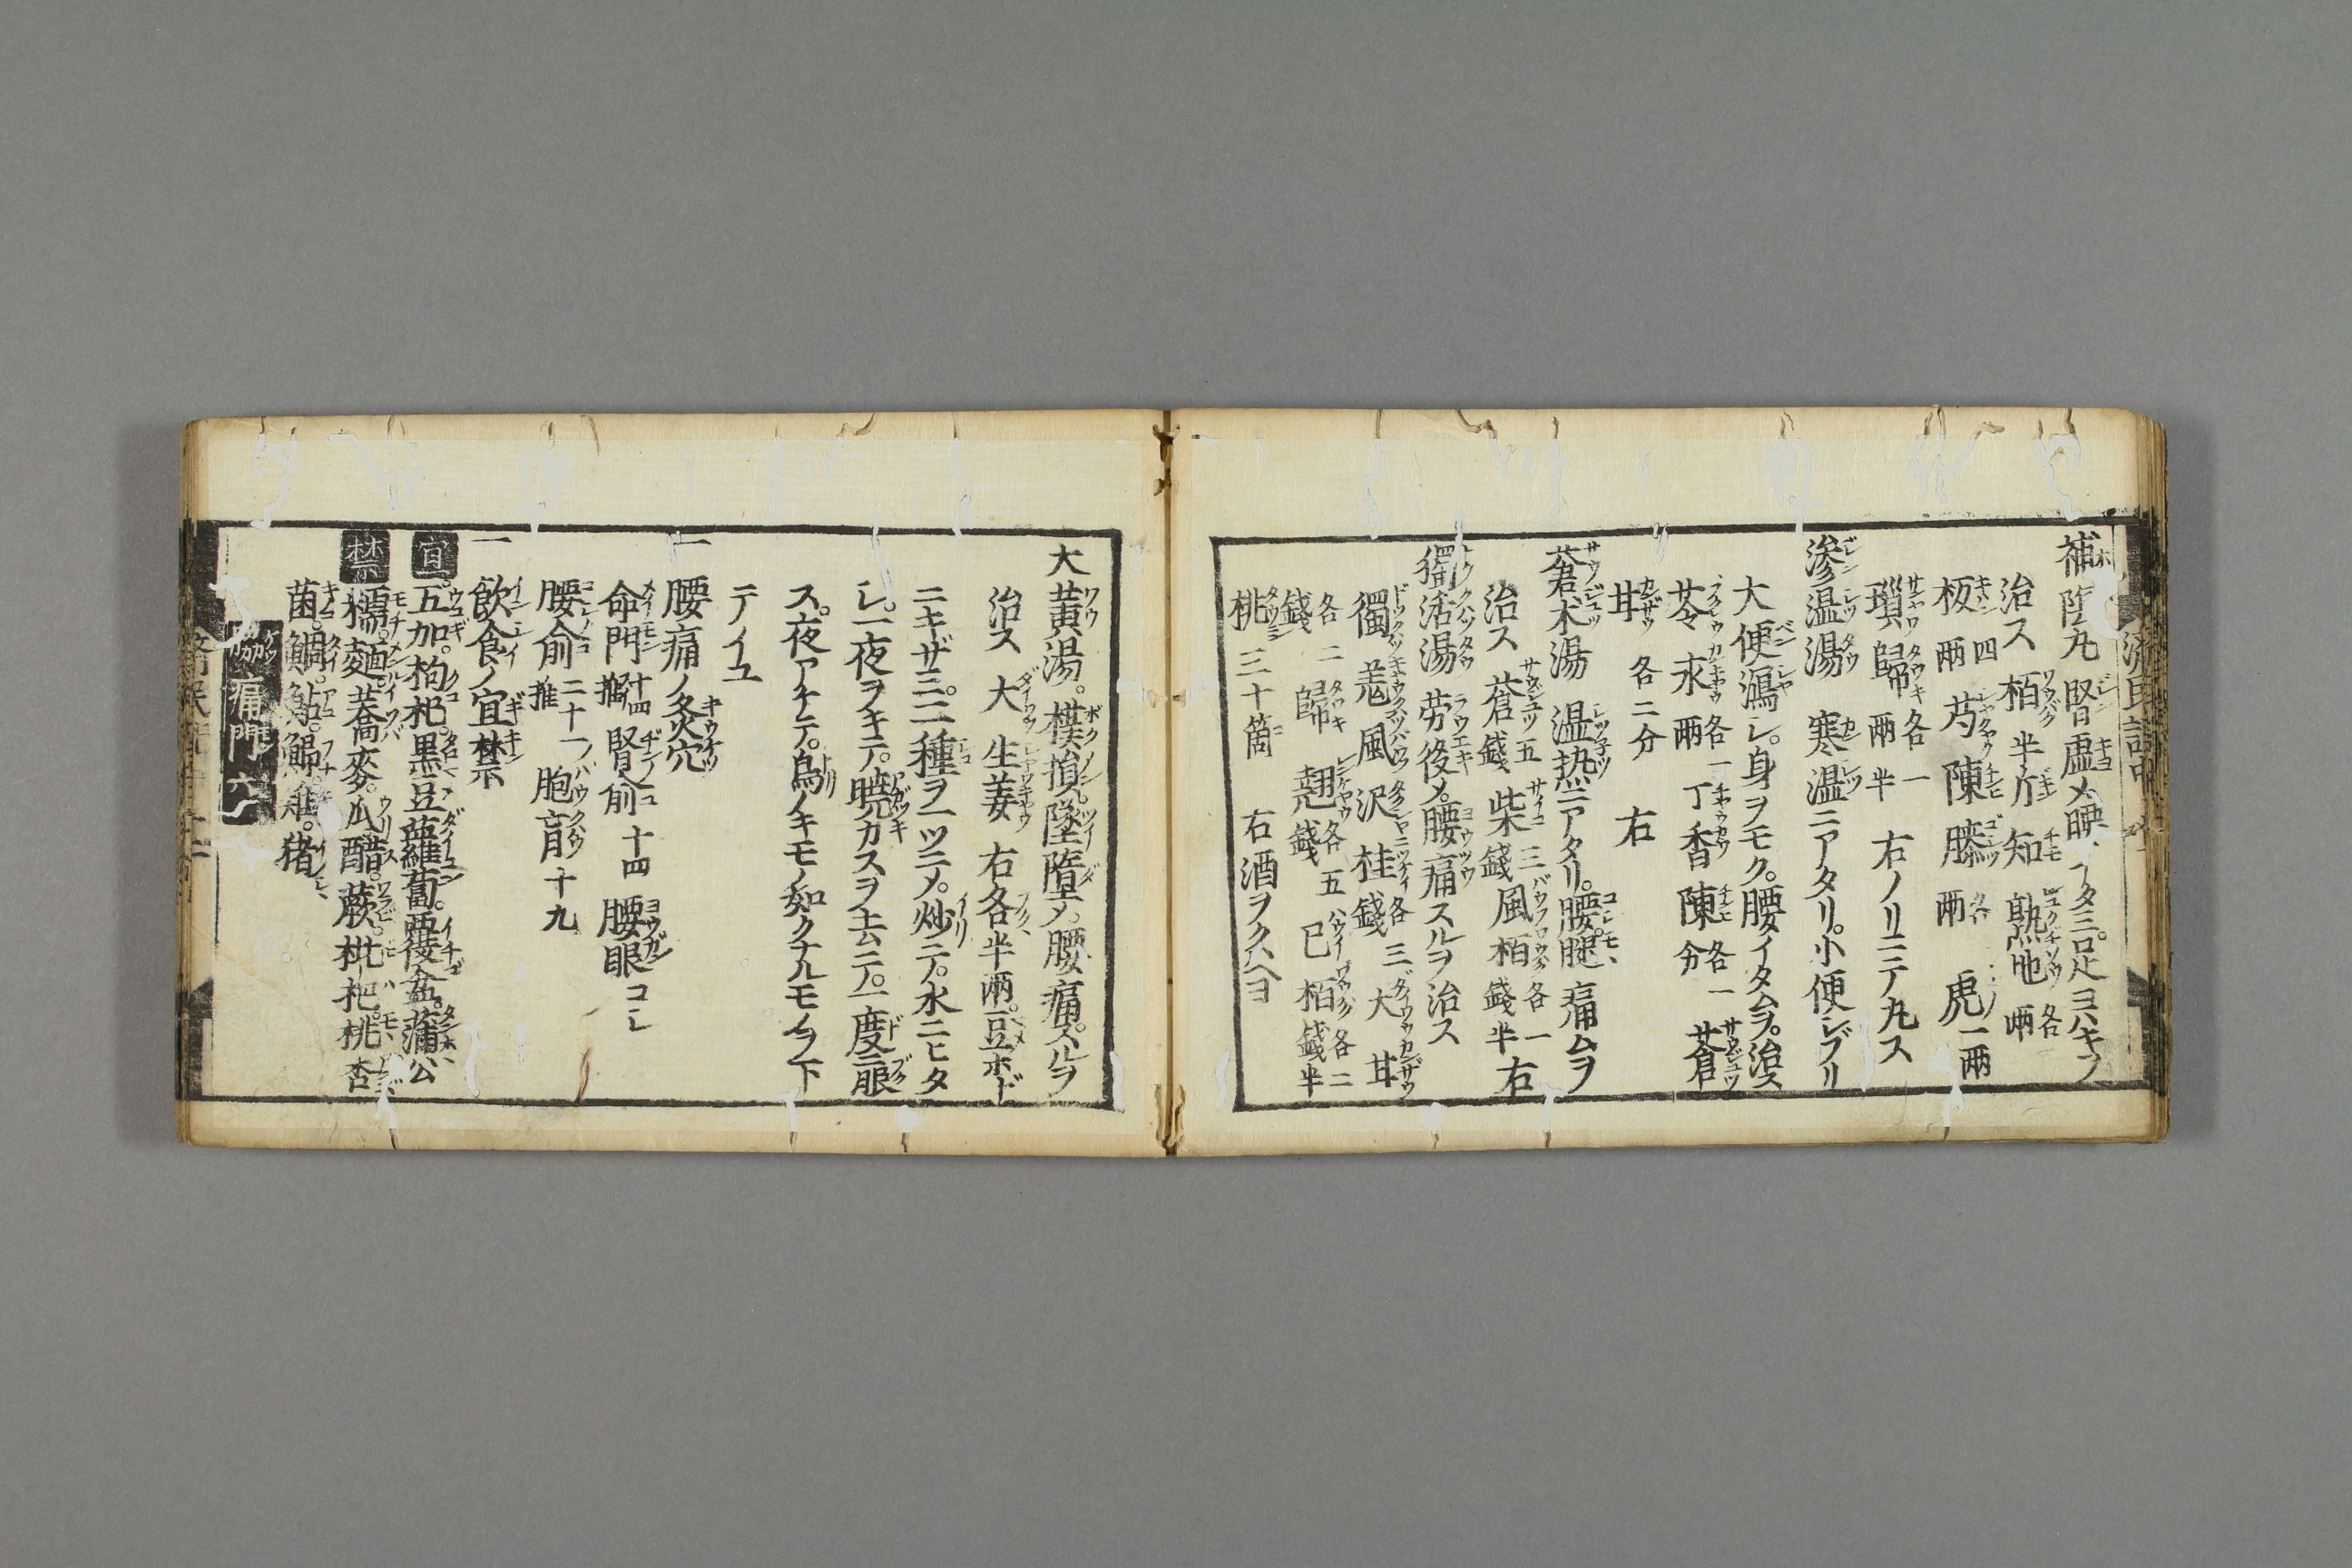 補陰丸 腎虚〆腰イタミ。足ヨハキヲ
治ス 栢半斤 知 熟地各兩
板四兩 芍 陳 膝各兩 虎一兩
瑣 歸各一兩半 右ノリニテ丸ス
滲湿湯 寒湿ニアタリ。小便シブリ
大便瀉シ。身ヲモク。腰イタムヲ。治ス
苓 朮各一兩 丁香 陳各一分 蒼
甘各二分 右
蒼朮湯 湿熱ニアタリ。腰腿痛ムヲ
治ス 蒼五錢 柴三錢 風 栢各一錢半 右
獨活湯 労役〆。腰痛スルヲ治ス
獨 羌 風 沢 桂各三錢 大 甘
各二錢 歸 翹各五錢 已 栢各二錢半
桃三十箇 右酒ヲクハヘヨ
大黄湯。撲損墜墮〆。腰痛スルヲ
治ス 大 生姜 右各半兩。豆ホド
ニキザミ。二種ヲ一ツニ〆。炒テ。水ニヒタ
シ。一夜ヲキテ。暁カスヲ去ニテ。一度ニ服
ス。夜アケテ。鳥ノキモノ如クナルモノヲ下
テイユ
一 腰痛ノ灸穴
命門十四推 腎俞十四 腰眼コシ
腰俞二十一推 胞肓十九
一 飲食ノ宜禁
宜。五加。枸杞。黒豆蘿蔔。覆盆。蒲公
禁 糯。麺蕎麥。瓜醋。蕨枇杷。桃杏
菌。鯛。鮎。鯽雉。猪
脇痛門六